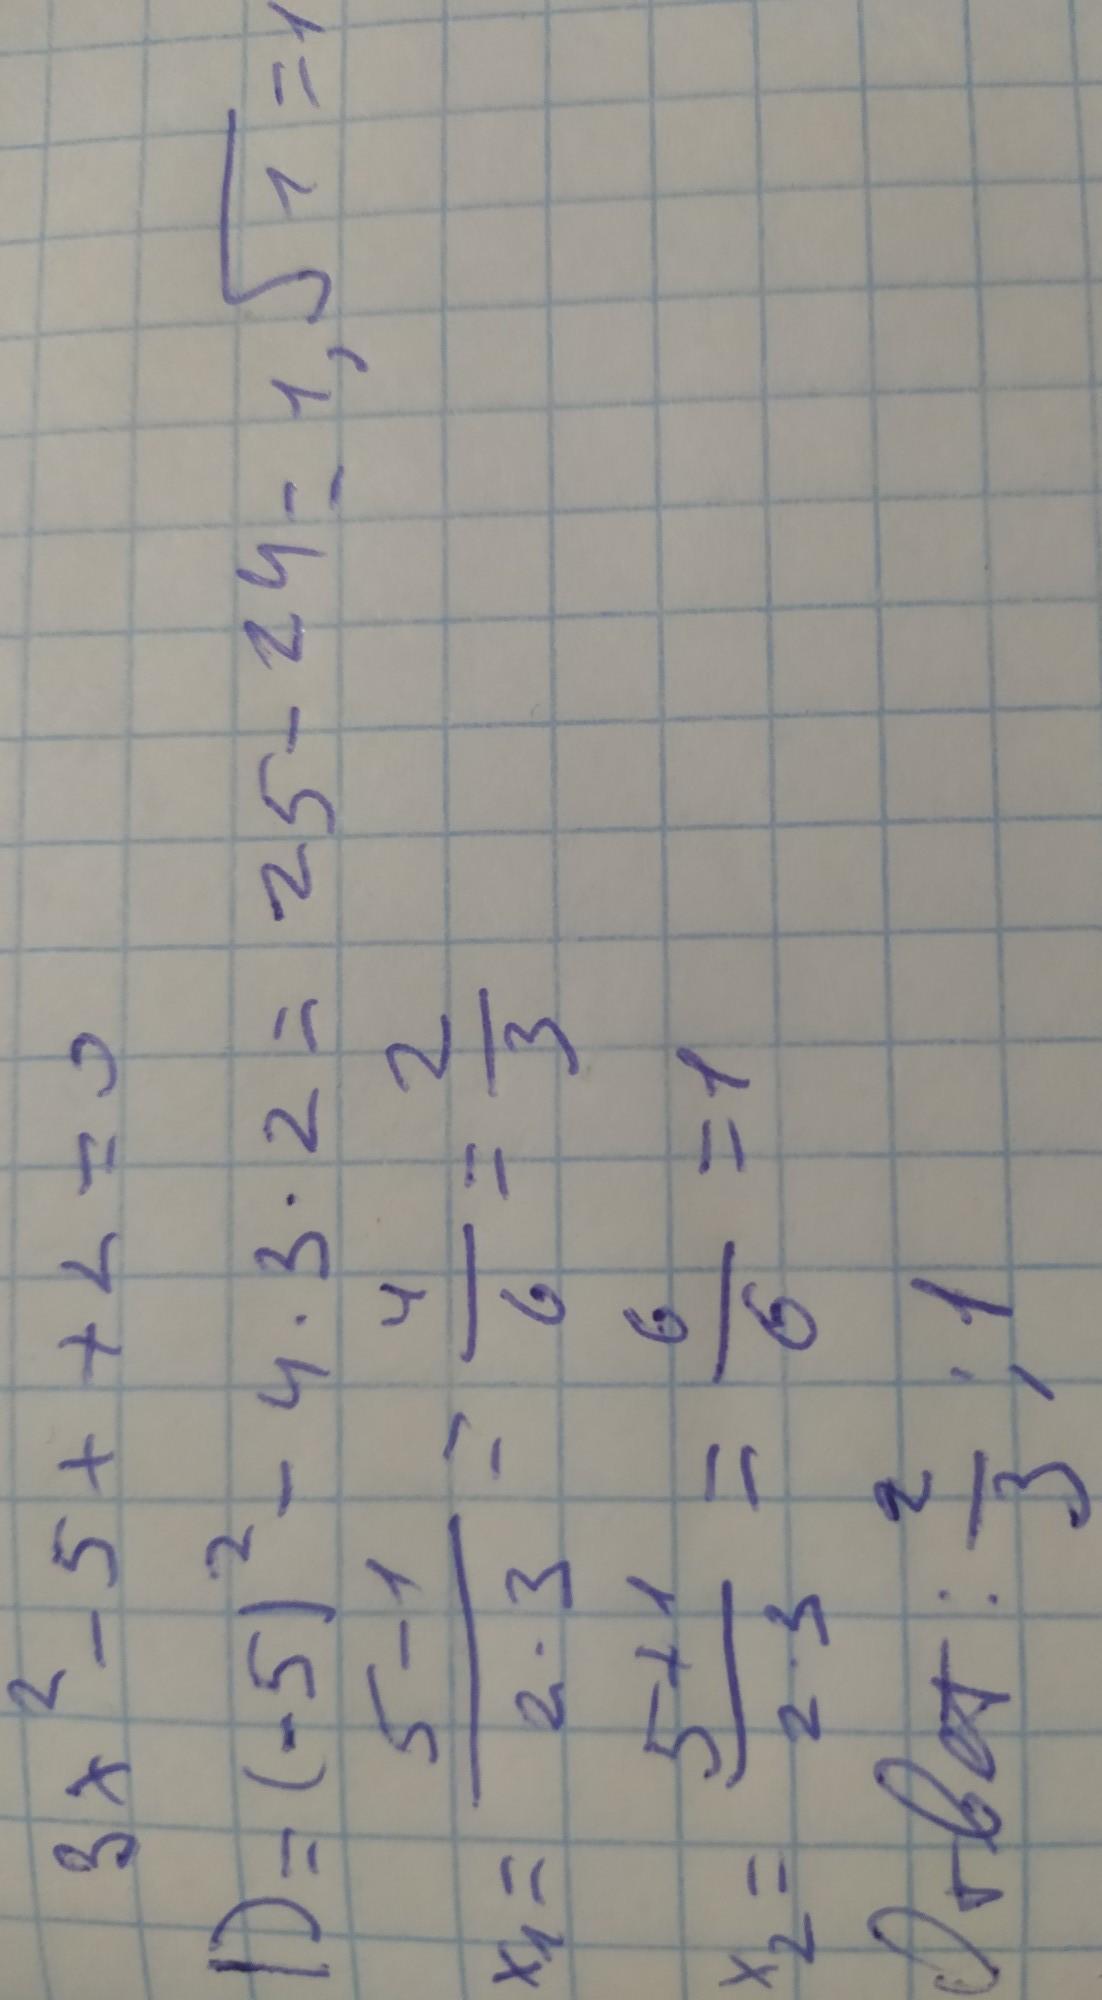 3x² - 5x + 2 = 0
D = (-5)² - 4 · 3 · 2 = 25 - 24 = 1, √1 = 1
x₁ = (5 - 1)/(2 · 3) = 4/6 = 2/3
x₂ = (5 + 1)/(2 · 3) = 6/6 = 1
Ответ: 2/3 ; 1